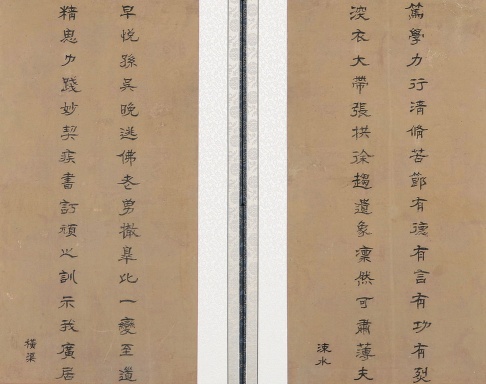 篤學力行清脩苦節有德有言有功有烈
深衣大帶張拱徐趨遺象凜然可肅薄夫
涑水
早悅孫吳晚逃佛老勇撤皋比一變至道
精思力踐妙契疾書訂頑之訓示我廣居
橫渠